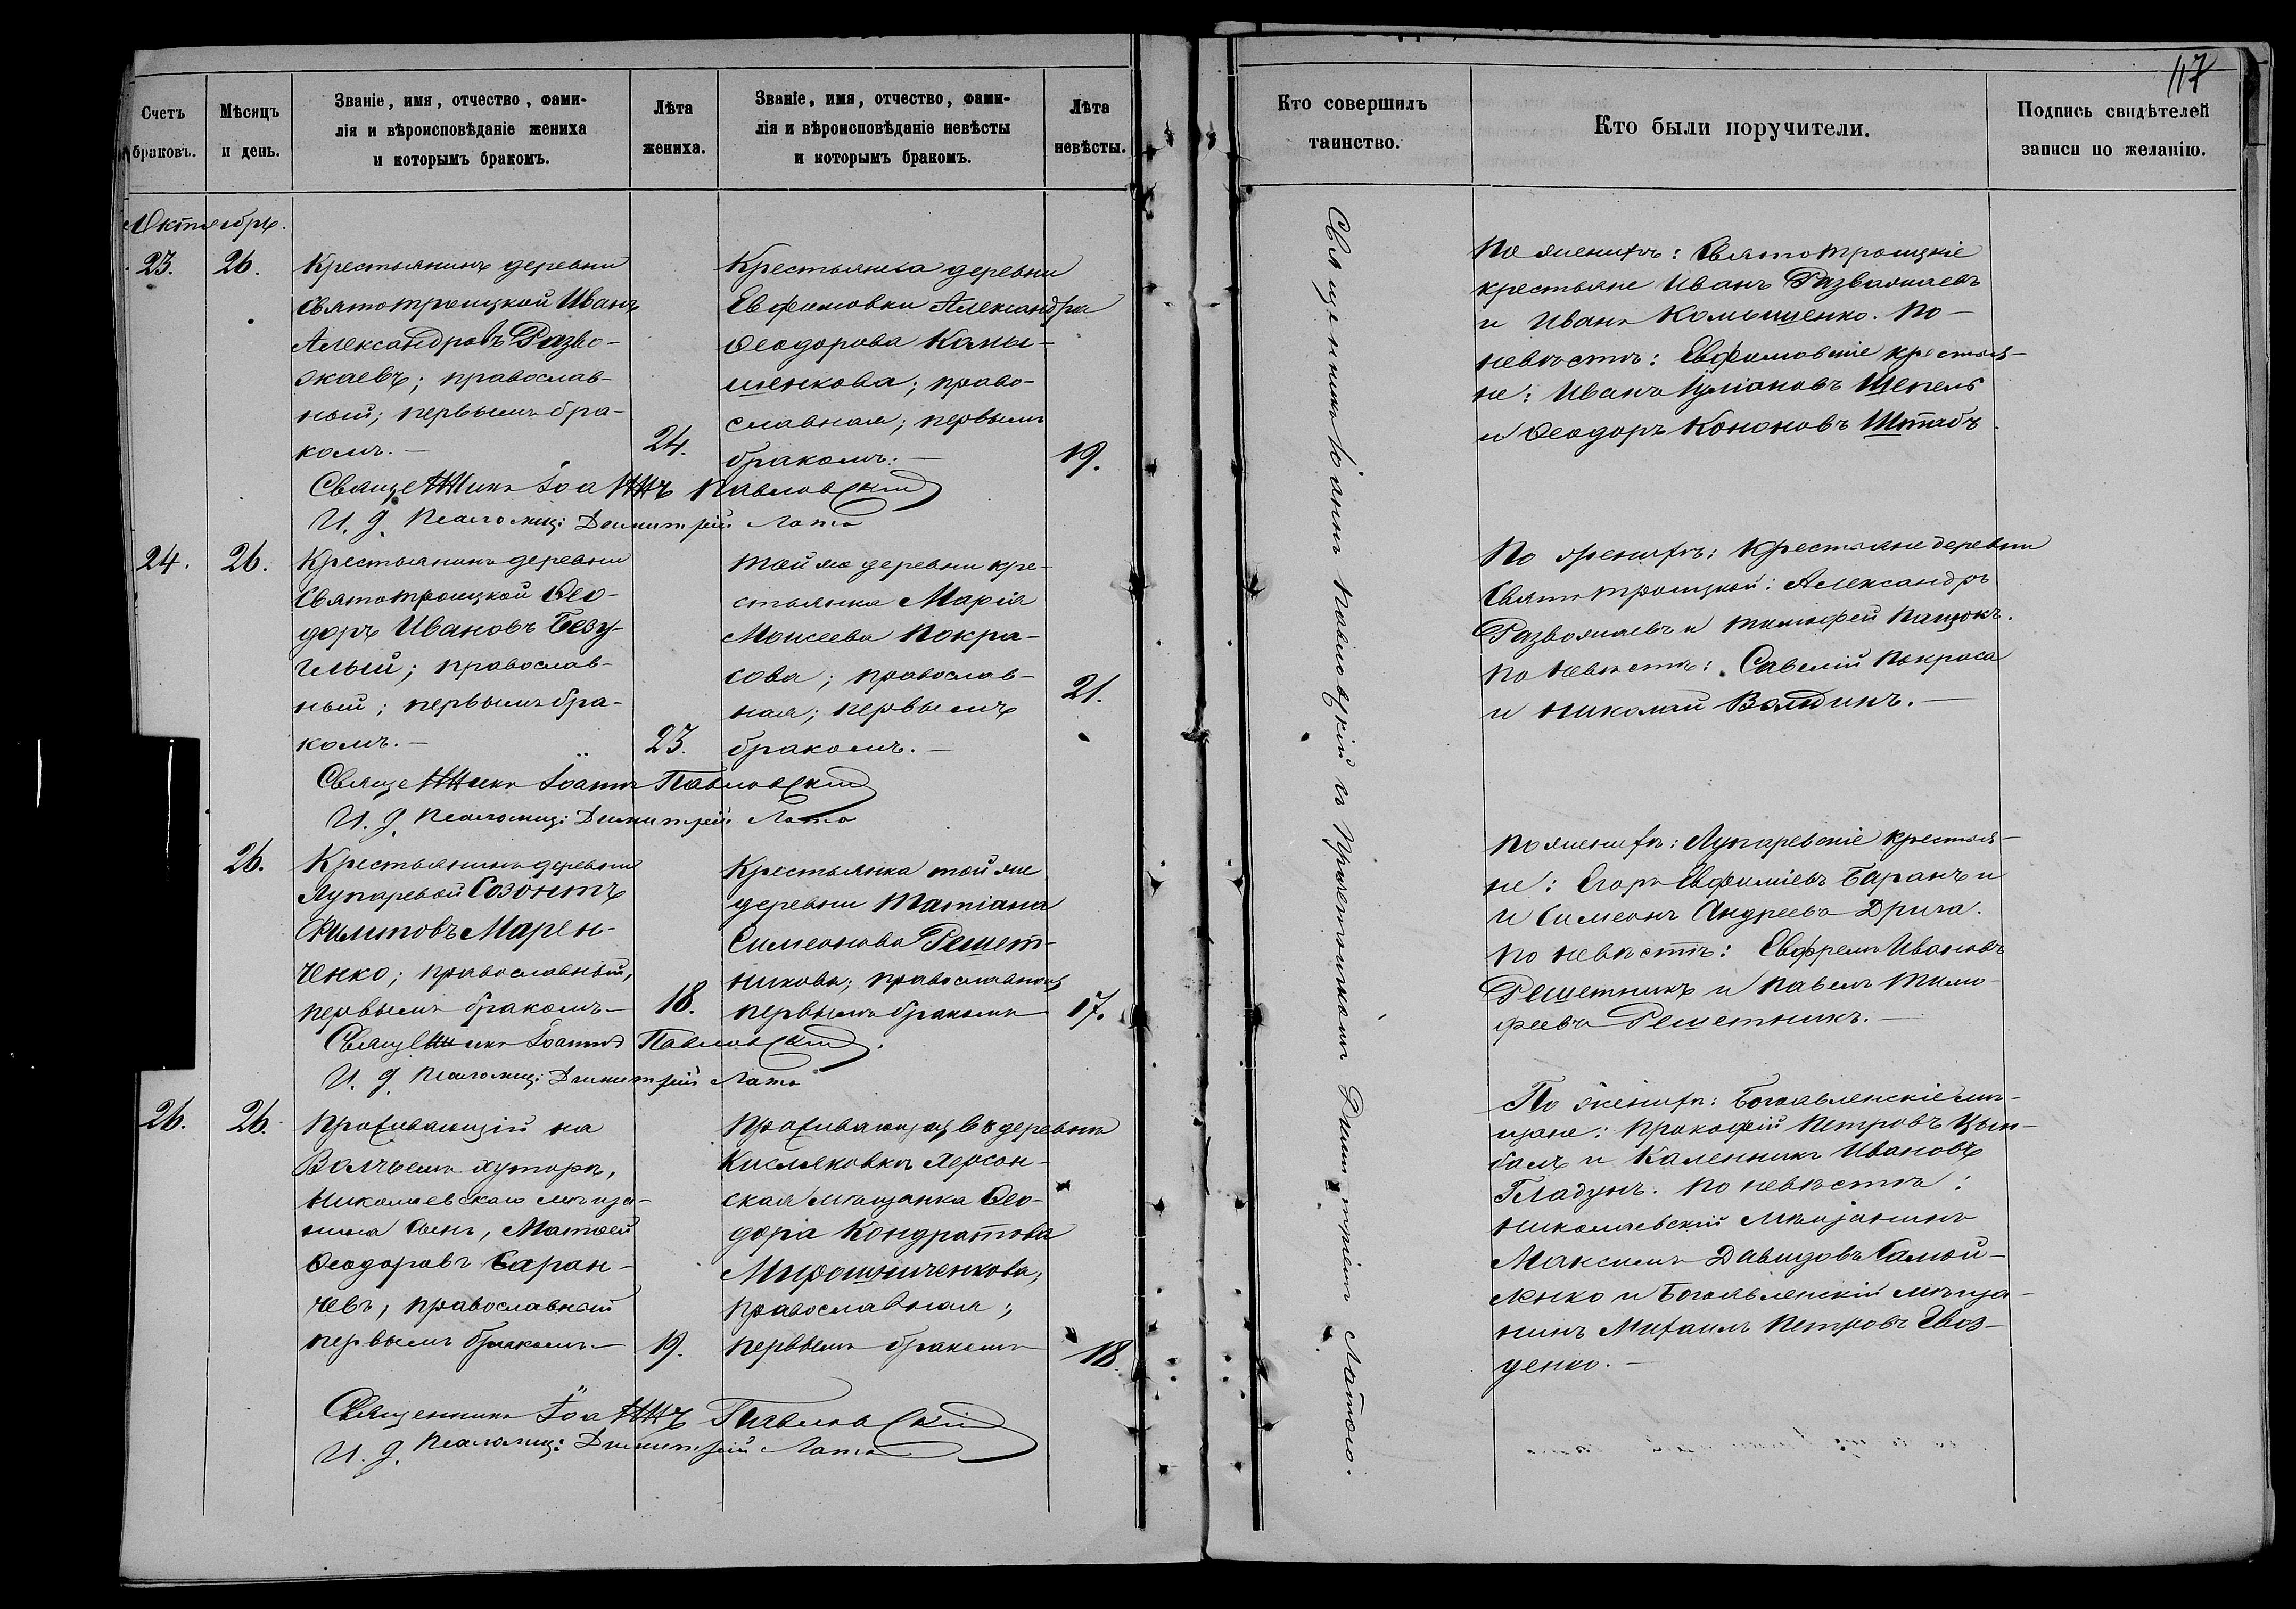 117
Счетъ
браковъ.
Мѣсяцъ
и день.
Званіе, имя, отчество, фами-
лія и вѣроисповѣданіе жениха
и которымъ бракомъ.
Лѣта
жениха.
Званіе, имя, отчество, фами-
лія и вѣроисповѣданіе невѣсты
и которымъ бракомъ.
Лѣта
невѣсты.
Кто совершилъ
таинство.
Кто были поручители.
Подпись свидѣтелей
записи по желанію.
Октябрь.
23.
26.
Крестьянинъ деревни
Святотроицкой Иванъ
Александровъ Разво-
жаевъ; православ-
ный; первымъ бра-
комъ. —
24.
Крестьянка деревни
Евфимовки Александра
Ѳеодорова Камы-
шенкова; право-
славная; первымъ
бракомъ. —
19.
Священникъ Іоаннъ Павловскій
И. д. Псаломщ: Димитрій Лата
24.
26.
Крестьянинъ деревни
Святотроицкой Ѳео-
доръ Ивановъ Безу-
глый; православ-
ный; первымъ бра-
комъ. —
23.
Той же деревни кре-
стьянка Марія
Моисеева Покра-
сова; православ-
ная; первымъ
бракомъ. —
21.
Священникъ Іоаннъ Павловскій
И. д. Псаломщ: Димитрій Лата
26.
Крестьянинъ деревни
Лупаревой Созонтъ
Филиповъ Марен-
ченко; православный,
первымъ бракомъ —
18.
Крестьянка той же
деревни Татіана
Симеонова Решет-
никова; православная
первымъ бракомъ
17.
Священникъ Іоаннъ Павловскій
И. д. Псаломщ: Димитрій Лата
26.
26.
Проживающій на
Волчьемъ хуторѣ,
Николаевскаго мѣща-
нина сынъ, Матѳей
Ѳеодоровъ Саран-
чевъ, православный
первымъ бракомъ —
19.
Проживающая въ деревнѣ
Кисляковкѣ Херсон-
ская мѣщанка Ѳео-
дорія Кондратова
Мирошниченкова;
православная;
первымъ бракомъ
18.
Священникъ Іоаннъ Павловскій
И. д. Псаломщ: Димитрій Лата
Священникъ Іоаннъ Павловскій съ Причетникомъ Димитріемъ Латою.
По женихѣ: Святотроицкіе
крестьяне Иванъ Развожаевъ
и Иванъ Комышенко. По-
невѣстѣ: Евфимовскіе крестья-
не: Иванъ Іуліановъ Шепель
и Ѳеодоръ Кононовъ Штабъ.
По женихѣ: крестьяне деревни
Святотроицкой: Александръ
Развожаевъ и Тимофей Пацюкъ.
По невѣстѣ: Савелій Покраса
и Николай Волдинъ. —
По женихѣ: Лупаревскіе крестья-
не: Егоръ Евфиміевъ Баранъ и
и Симеонъ Андреевъ Дрига.
По невѣстѣ: Евфремъ Ивановъ
Решетникъ и Павелъ Тимо-
феевъ Решетникъ. —
По женихѣ: Богоявленскіе мѣ-
щане: Прокофій Петровъ Цым-
балъ и Каленникъ Ивановъ
Гладунъ. По невѣстѣ:
Николаевскій мѣщанинъ
Максимъ Давидовъ Самой-
ленко и Богоявленскій мѣща-
нинъ Михаилъ Петровъ Гвоз-
денко. —